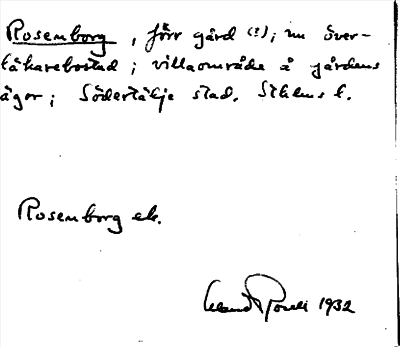 Rosenborg, förr gård (?); nu över-
läkarebostad; villaområde å gårdens
ägor; Södertälje stad. Sthlms l.
Rosenborg ek.
1932